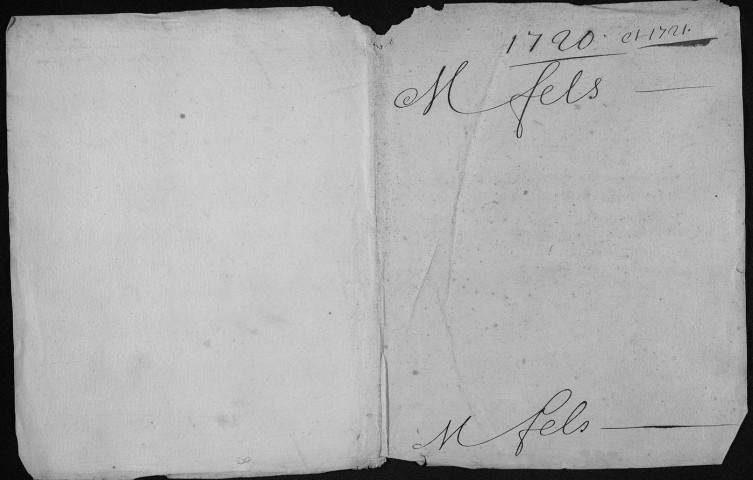 1720. et 1721.
M fels
M fels